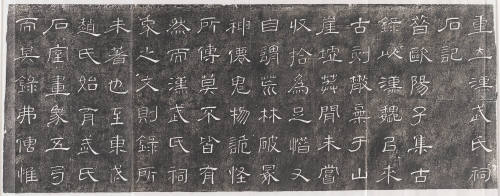 重立漢武氏祠
石記
昔歐陽子集古
錄以漢魏已來
古刻散棄于山
崖墟莽間未嘗
收拾為足惜又
自謂荒林破冢
神僊鬼物詭怪
所傳莫不皆有
然而漢武氏祠
象之文則錄所
未著也至東武
趙氏始有武氏
石室畫象五弓
而其錄弗傳惟